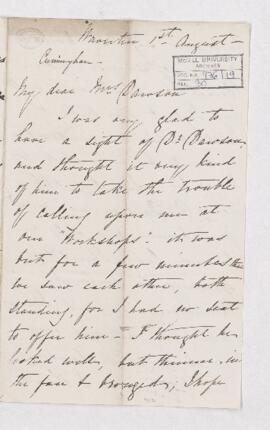 1st August
McGILL UNIVERSITY
ARCHIVES
ACC. NO. 936/19
REF. 50
My dear Mrs Dawson
I was very glad to
have a sight of Dr Dawson
and thought it very kind
of him to take the trouble
of calling upon me at
our "Workshops". it was
but for a few minutes that
we saw each other, both
standing, for I had no seat
to offer him - I thought he
looked well, but thinner in
the face & bronzed; I hope